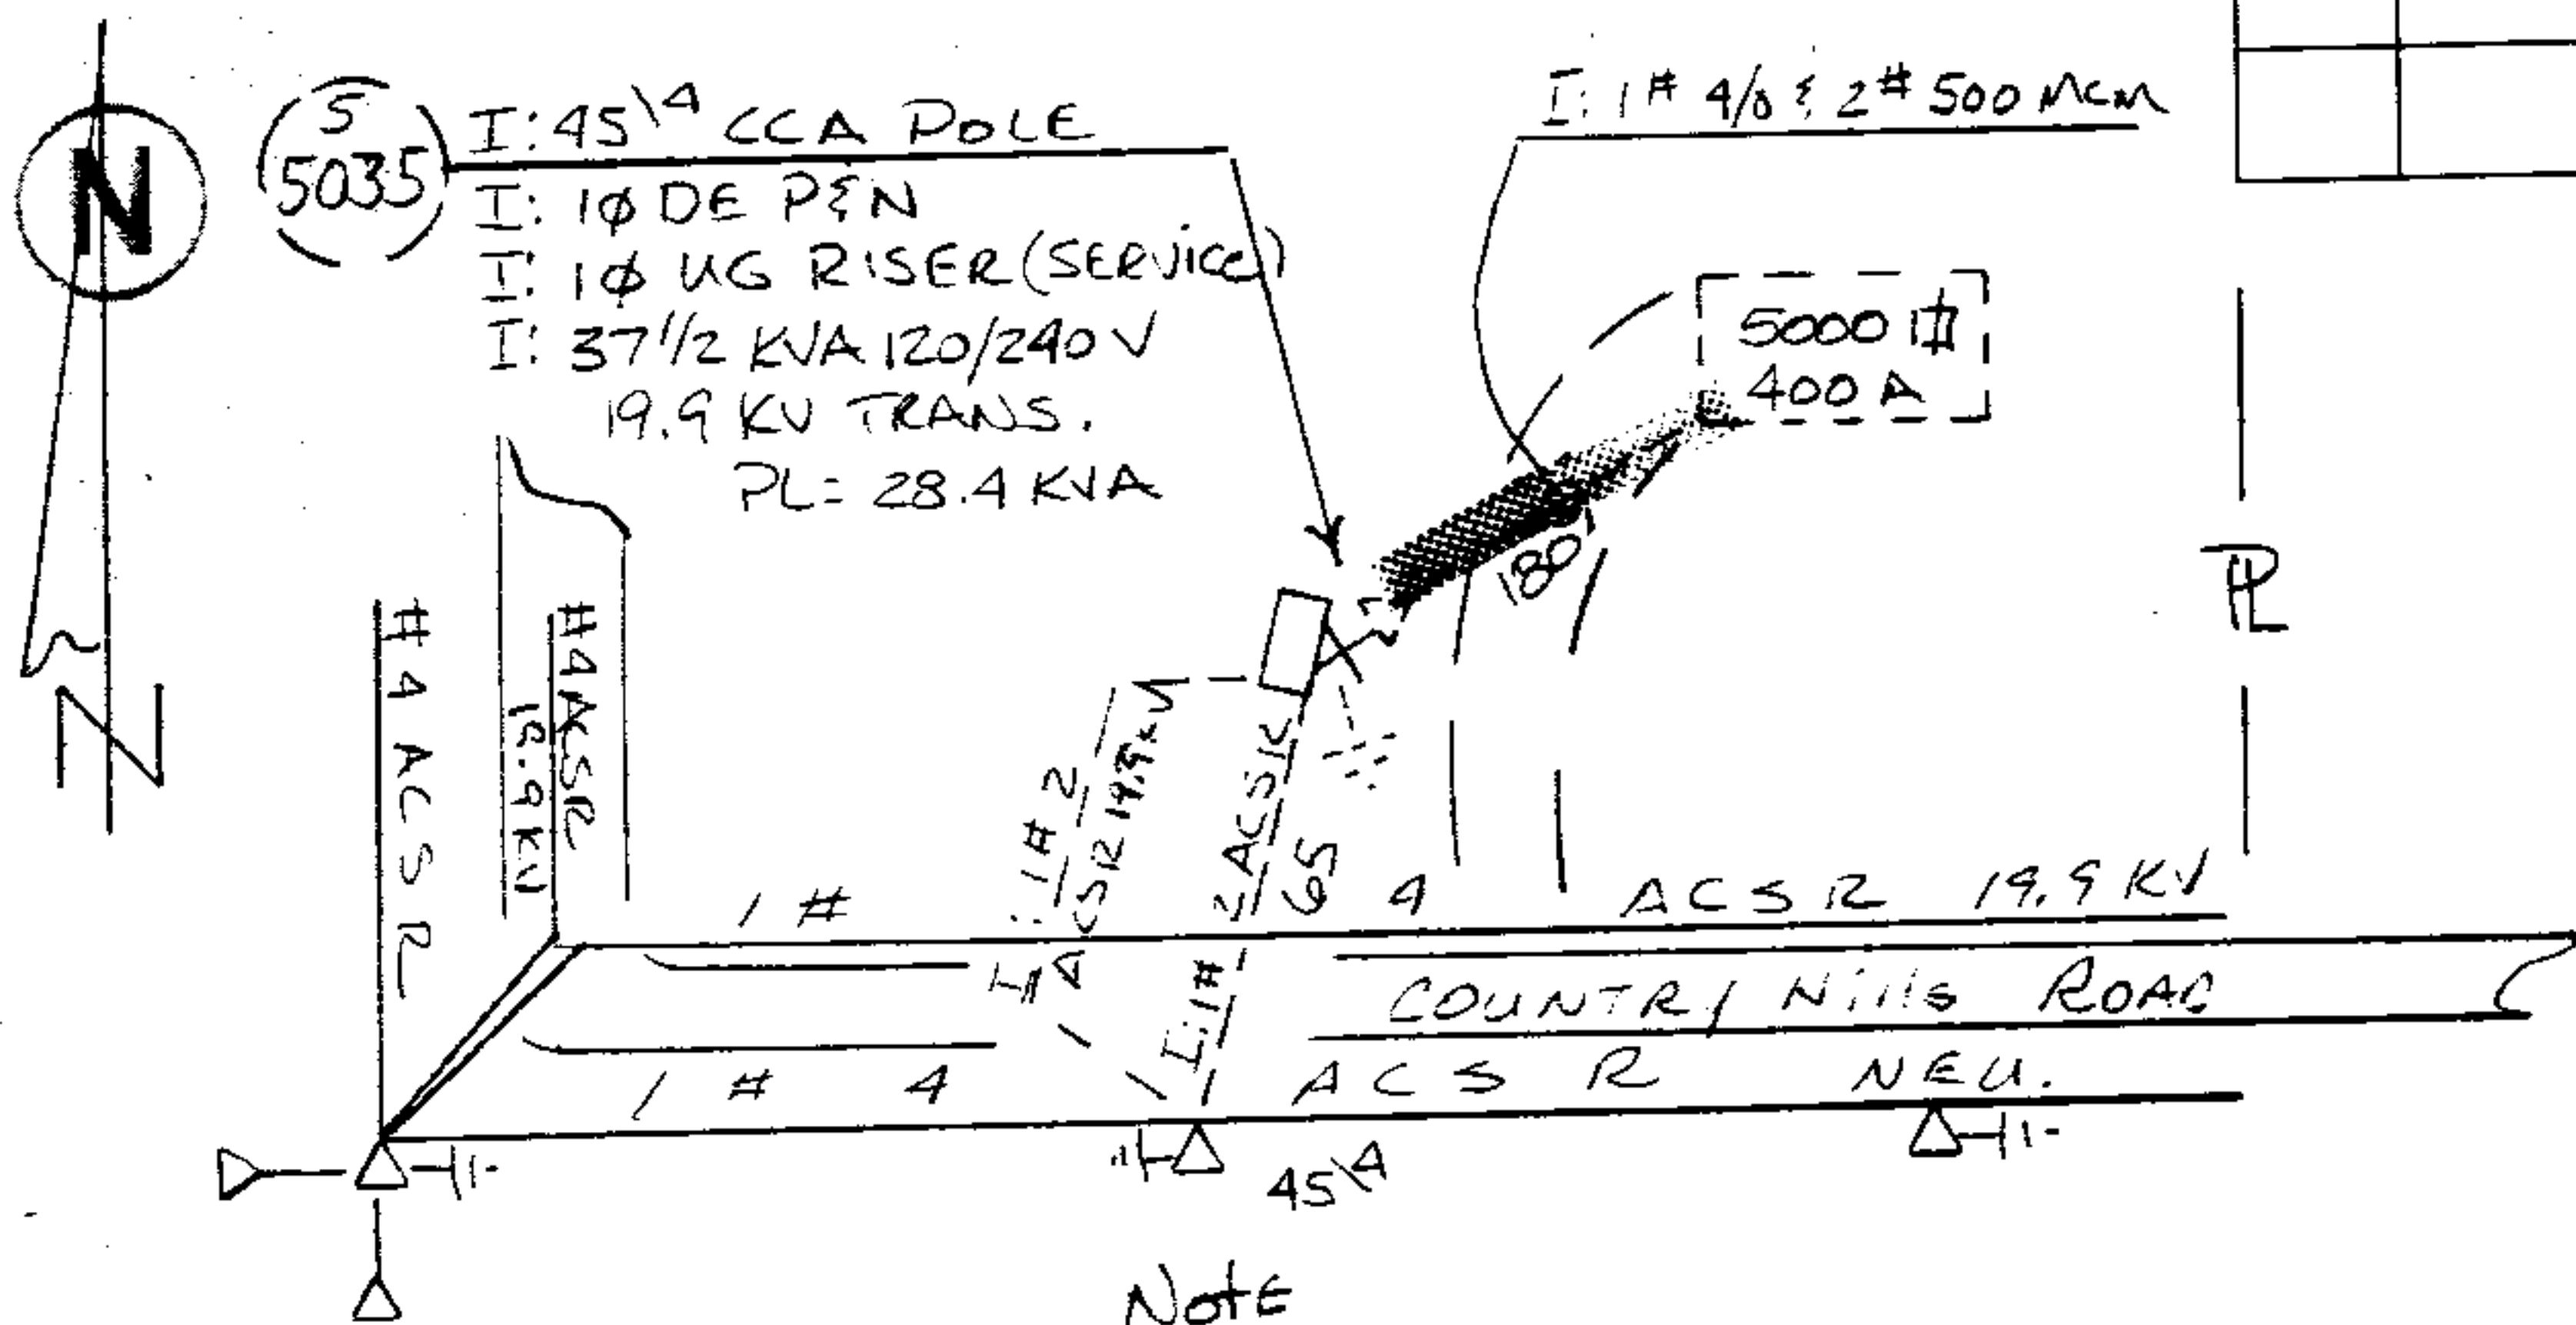 N
S
5035
I: 45\4 CCA POLE
I: 1Ø DE P&N
I: 1Ø UG RISER (SERVICE)
I: 37 1/2 KVA 120/240 V
19.9 KV TRANS.
PL= 28.4 KVA
I: 1# 4/0 & 2# 500 MCM
5000
400 A
180
PL
#4 ACSR
#4 ACSR
19.9 KV
I: 1# 2
ACSR 19.9 KV
I: 1# 2 ACSR
65
1# 4 ACSR 19.9 KV
COUNTRY Hills ROAD
1# 4 ACSR NEU.
45\4
NotE